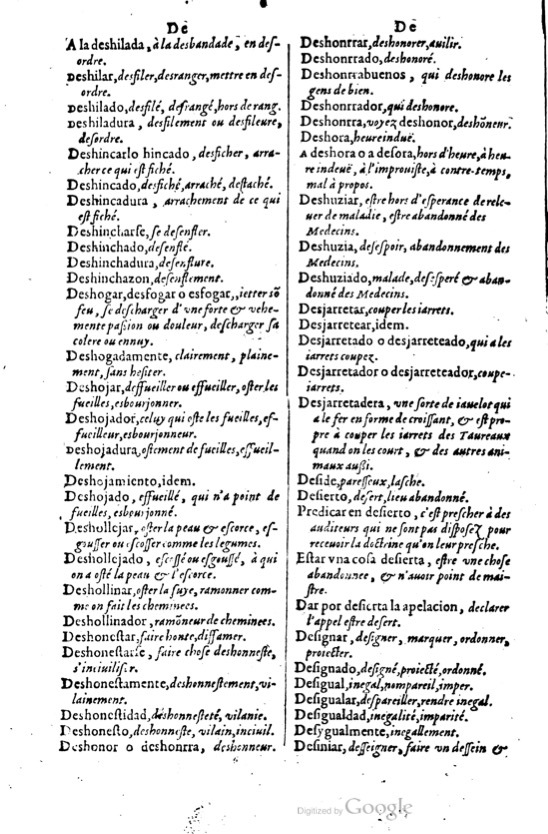 De
A la deshilada, à la desbandade, en des-
ordre.
Deshilar, desfiler, desranger, mettre en des-
ordre.
Deshilado, desfilé, desrangé, hors de rang.
Deshiladura, desfilement ou desfileure,
desordre.
Deshincarlo hincado, desficher, arra-
cher ce qui est fiché.
Deshincado, desfiché, arraché, destaché.
Deshincadura, arrachement de ce qui
est fiché.
Deshincharse, se desenfler.
Deshinchado, desenflé.
Deshinchadura, desenflure.
Deshinchazon, desenflement.
Deshogar, desfogar o esfogar, ietter sõ
feu, se descharger d'vne forte & vehe-
mente passion ou douleur, descharger sa
colere ou ennuy.
Deshogadamente, clairement, plaine-
ment, sans hesiter.
Deshojar, deffueiller ou effueiller, oster les
fueilles, esbourjonner.
Deshojador, celuy qui oste les fueilles, ef-
fueilleur, esbourjonneur.
Deshojadura, ostement de fueilles, effueil-
lement.
Deshojamiento, idem.
Deshojado, effueillé, qui n'a point de
fueilles, esbourjonné.
Deshollejar, oster la peau & escorce, es-
gousser ou escosser comme les legumes.
Deshollejado, escossé ou esgoussé, à qui
on a osté la peau & l'escorce.
Deshollinar, oster la suye, ramonner com-
me on fait les cheminees.
Deshollinador, ramõneur de cheminees.
Deshonestar, faire honte, diffamer.
Deshonestarse, faire chose deshonneste,
s'inciuiliser.
Deshonestamente, deshonnestement, vi-
lainement.
Deshonestidad, deshonnesteté, vilanie.
Deshonesto, deshonneste, vilain, inciuil.
Deshonor o deshonrra, deshonneur.
De
Deshontrar, deshonorer, auilir.
Deshonrrado, deshonoré.
Deshonrrabuenos, qui deshonore les
gens de bien.
Deshonrrador, qui deshonore.
Deshonrra, voyez deshonor, deshõneur.
Deshora, heure induë.
A deshora o a desora, hors d'heure, à heu-
re induë, à l'improuiste, à contre-temps,
mal à propos.
Deshuziar, estre hors d'esperance de rele-
uer de maladie, estre abandonné des
Medecins.
Deshuzia, desespoir, abandonnement des
Medecins.
Deshuziado, malade, desesperé & aban-
donné des Medecins.
Desjarretar, couper les iarrets.
Desjarretear, idem.
Desjarretado o desjarreteado, qui a les
iarrets coupez.
Desjarretador o desjarreteador, coupe-
iarrets.
Desjarretadera, vne sorte de iauelot qui
a le fer en forme de croissant, & est pro-
pre à couper les iarrets des Taureaux
quand on les court, & des autres ani-
maux aussi.
Deside, paresseux, lasche.
Desierto, desert, lieu abandonné.
Predicar en desierto, c'est prescher à des
auditeurs qui ne sont pas disposez pour
receuoir la doctrine qu'on leur presche.
Estar vna cosa desierta, estre vne chose
abandonnee, & n'auoir point de mai-
stre.
Dar por desierta la apelacion, declarer
l'appel estre desert.
Designar, designer, marquer, ordonner,
proiecter.
Designado, designé, proiecté, ordonné.
Desigual, inegal, nompareil, imper.
Desigualar, despareiller, rendre inegal.
Desigualdad, inegalité, imparité.
Desygualmente, inegallement.
Desiniar, desseigner, faire vn dessein &
Digitized by Google